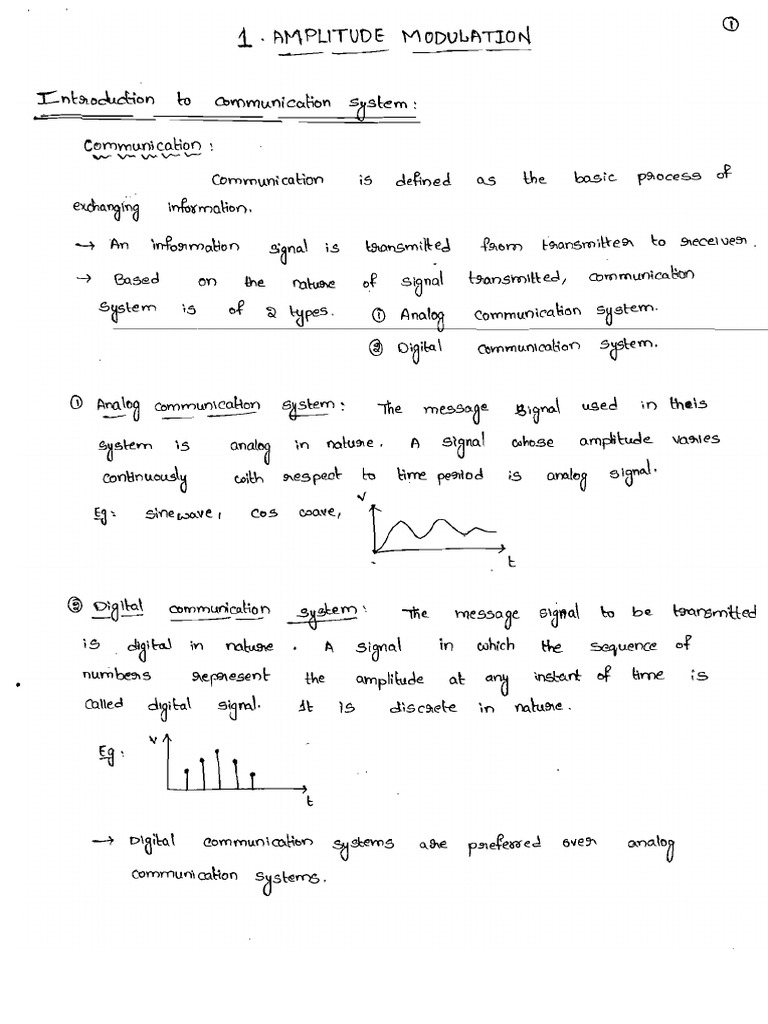 ①
1. AMPLITUDE MODULATION
Introduction to communication system:
Communication:
Communication is defined as the basic process of
exchanging information.
→ An information signal is transmitted from transmitter to receiver.
→ Based on the nature of signal transmitted, communication
system is of 2 types. ① Analog communication system.
② Digital communication system.
① Analog communication system: The message signal used in theis
system is analog in nature. A signal whose amplitude varies
continuously with respect to time period is analog signal.
Eg: sinewave, cos wave,
V
t
② Digital communication system: The message signal to be transmitted
is digital in nature. A signal in which the sequence of
numbers represent the amplitude at any instant of time is
called digital signal. It is discrete in nature.
Eg:
V
t
→ Digital communication systems are preferred over analog
communication systems.